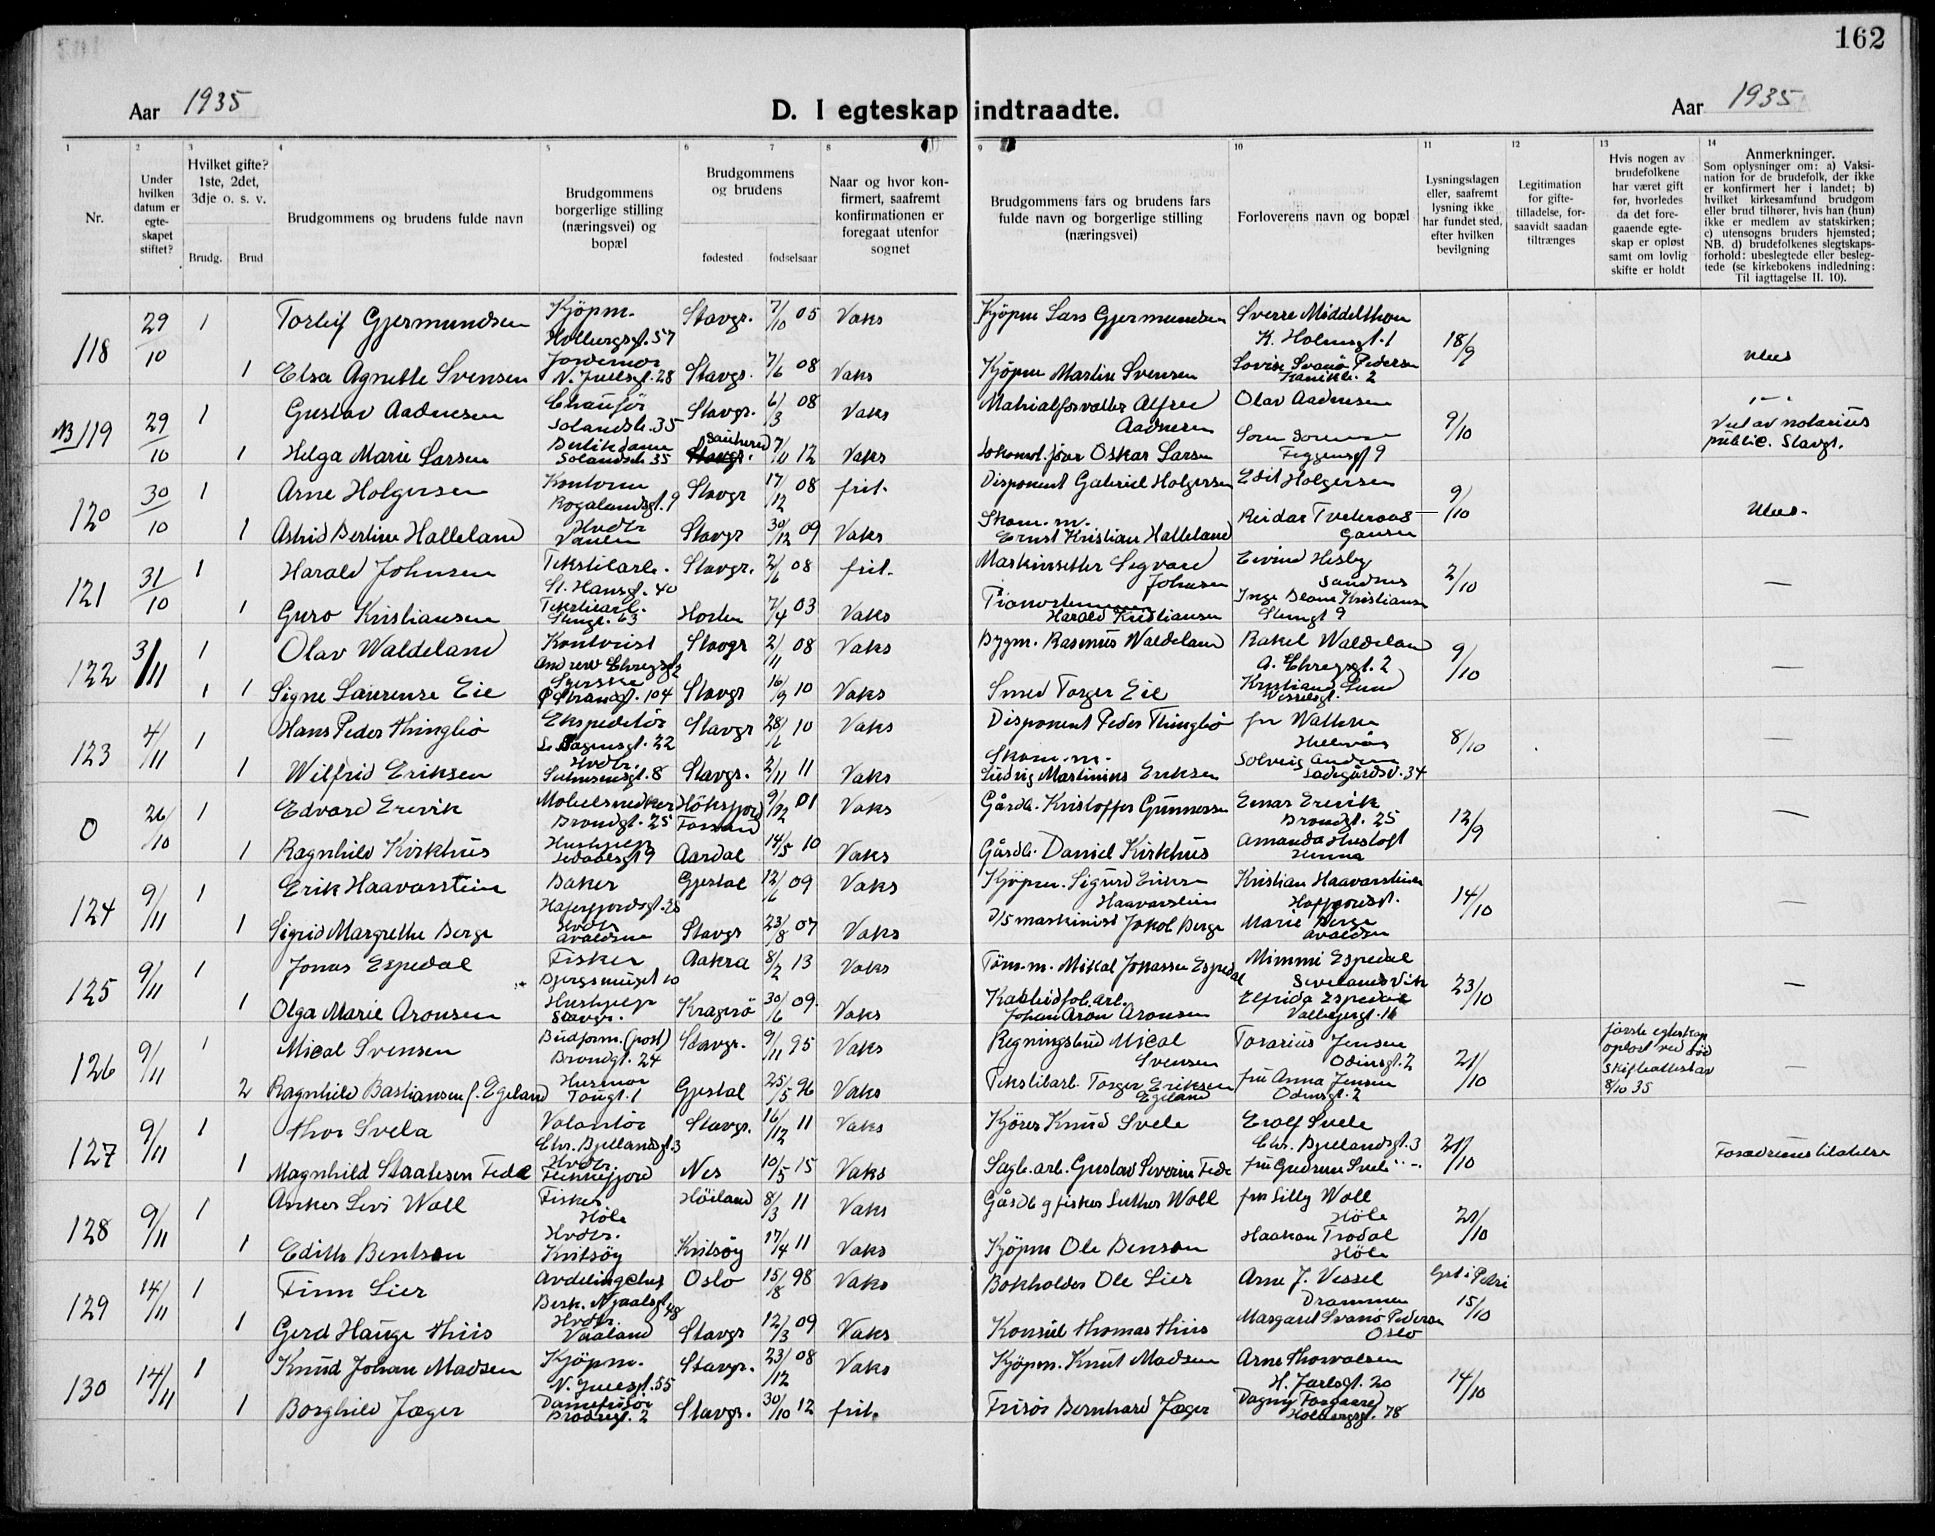 162
Aar 1935
D. I egteskap indtraadte.
Aar 1935
1
Nr.
2
Under hvilken datum er egteskapet stiftet?
3
Hvilket gifte? 1ste, 2det, 3dje o. s. v.
Brudg.
Brud
4
Brudgommens og brudens fulde navn
5
Brudgommens borgerlige stilling (næringsvei) og bopæl
6
7
Brudgommens og brudens
fødested
fødselsaar
8
Naar og hvor konfirmert, saafremt konfirmationen er foregaat utenfor sognet
9
Brudgommens fars og brudens fars fulde navn og borgerlige stilling (næringsvei)
10
Forloverens navn og bopæl
11
Lysningsdagen eller, saafremt lysning ikke har fundet sted, efter hvilken bevilgning
12
Legitimation for giftetilladelse, forsaavidt saadan tiltrænges
13
Hvis nogen av brudefolkene har været gift før, hvorledes da det foregaaende egteskap er opløst samt om lovlig skifte er holdt
14
Anmerkninger.
Som oplysninger om: a) Vaksination for de brudefolk, der ikke er konfirmert her i landet; b) hvilket kirkesamfund brudgom eller brud tilhører, hvis han (hun) ikke er medlem av statskirken; c) utensogns bruders hjemsted; NB. d) brudefolkenes slegtskapsforhold: ubeslegtede eller beslegtede (se kirkebokens indledning: Til iagttagelse II. 10).
118 29/10 1 Torleif Gjermundsen Kjöpm. Holbergsgt. 57 Stavgr. 7/10 05 Vaks Kjöpm Lars Gjermundsen Sverre Middelthon K. Holmsgt. 1 18/9
1 Elsa Agnethe Svensen Jordemor N. Juelsgt. 28 Stavgr. 7/6 08 Vaks Kjöpm Martin Svensen Lovise Svanö Pedersen Kanikb. 2
NB 119 29/10 1 Gustav Aadnesen Chauför Solandsb. 35 Stavgr. 6/3 08 Vaks Alfred Aadnesen Olav Aadnesen 9/10 av notarius public. Stavgr.
1 Helga Marie Larsen Solandsb. 35 Sauherad 7/11 12 Vaks Oskar Larsen 9
120 30/10 1 Arne Holgersen Kontorm Rogalandsgt. 9 Stavgr 17/12 08 frit. Disponent Gabriel Holgersen Edit Holgersen 9/10
1 Astrid Bertine Halleland Hvdtr Vaulen Stavgr 30/12 09 Vaks Skom. m. Ernst Kristian Halleland Reidar Tveteraas Gausen
121 31/10 1 Harald Johnsen Tekstilarb. St. Hansgt. 40 Stavgr. 2/6 08 frit. Maskinsetter Sigvard Johnsen Eivind Hesby Sandnes 2/10 —
1 Guro Kristiansen Tekstilarb. Stengt. 63 Horten 7/4 03 Vaks Harald Kristiansen Inge Kristiansen Stengt 9
122 3/11 1 Olav Waldeland Kontorist Andrew Chrsgt. 2 Stavgr 2/11 08 Vaks Bygm. Rasmus Waldeland Rakel Waldeland A. Chrsgt. 2 9/10 —
1 1 Signe Laurense Eie Ø Strandgt. 104 Stavgr 16/9 10 Vaks Smed Torger Eie Kristian Lund Wesselsgt.
123 4/11 1 Hans Peder Thingbö Ekspeditör 22 Stavgr 28/6 10 Vaks Disponent Peder Thingbö fru 8/10 —
1 Wilfrid Eriksen Hvdtr. 8 Stavgr. 2/11 11 Vaks Skom. m. Ludvig Martinius Eriksen Solveig Ladegårdsv. 34
0 26/10 1 Edvard Erevik Möbelsnedker Brondgt. 25 Hökstfjord Forsand 9/12 01 Vaks Gårdb. Kristoffer Gunnersen Einar Erevik Brondgt. 25 12/9 —
1 Ragnhild Kirkhus Hushjelp 9 Aardal 14/5 10 Vaks Gårdb. Daniel Kirkhus Amanda Hustoft Hinna
124 9/11 1 Erik Haavarstein Baker Hafrsfjordsgt. 28 Gjestal 12/6 09 Vaks Kjöpm. Sigurd Eriksen Haavarstein Kristian Haavarstein 14/10 —
1 Sigrid Margrethe Berge Hvdtr Stavgr 23/8 07 Vaks D/S maskinist Jakob Berge Marie Berge
125 9/11 1 Jonas Espedal Fisker Bjergsmuget 10 Aakra 8/2 13 Vaks Töm.m. Mikal Jonassen Espedal Mimmi Espedal 23/10 —
1 Olga Marie Aronsen Hushjelp Stavgr. Kragerö 30/6 09. Vaks Johan Aron Aronsen Elfrida Espedal 16
126 9/11 1 Mical Svensen Budform. (post) Brondgt. 24 Stavgr. 9/11 95 Vaks Regningsbud Mical Svensen Torarius Jensen Odinsgt. 2 21/10 første egteskap opløst ved død Skifteattest av 8/10 35 —
2 Ragnhild Bastiansen f. Egeland Husmor Tougt. 1 Gjestal 25/5 96 Vaks Tekstilarb. Torger Eriksen Egeland fru Anna Jensen Odinsgt. 2
127 9/11 1 Thor Svela Volontör Chr. Bjellandsgt. 3 Stavgr. 16/12 11 Vaks Kjörer Knud Svele Erolf Svele Chr. Bjellandsgt. 3 21/10
1 Magnhild Staalesen Fede Hvdtr. Fedefjord Nes 10/5 15 Vaks Sagb. arb. Gustav Severin Fede fru Gudrun Svele
128 9/11 1 Anker Levi Woll Fisker Höle Höiland 8/3 11 Vaks Gårdb og fisker Luther Woll fru Lilly Woll Höle 21/10
1 Edith Bentsen Hvdtr. Kvitsöy Kvitsöy 17/4 11 Vaks Kjöpm Ole Benson Haakon Trodal Höle
129 14/11 1 Finn Lier Avdelingchef Besk. Njaalsgt. 48 Oslo 15/8 98 Vaks Bokholder Ole Lier Arne J. Vessel Drammen Lyst i Petri 15/10
1 Gerd Hauge Thiis Hvdtr. Vaaland Stavgr 12/3 09 Vaks Konsul Thomas Thiis Margaret Svanö Pedersen Oslo
130 14/11 1 Knud Johan Madsen Kjöpm. N. Juelsgt. 55 Stavgr. 23/12 08 Vaks Kjöpm. Knut Madsen Arne Thorvalsen H. Jarlsgt. 20 14/10
1 Borghild Jæger Damefrisör 2 Stavgr. 30/10 12 frit. Frisör Bernhard Jæger Dagny Holbergsgt. 78